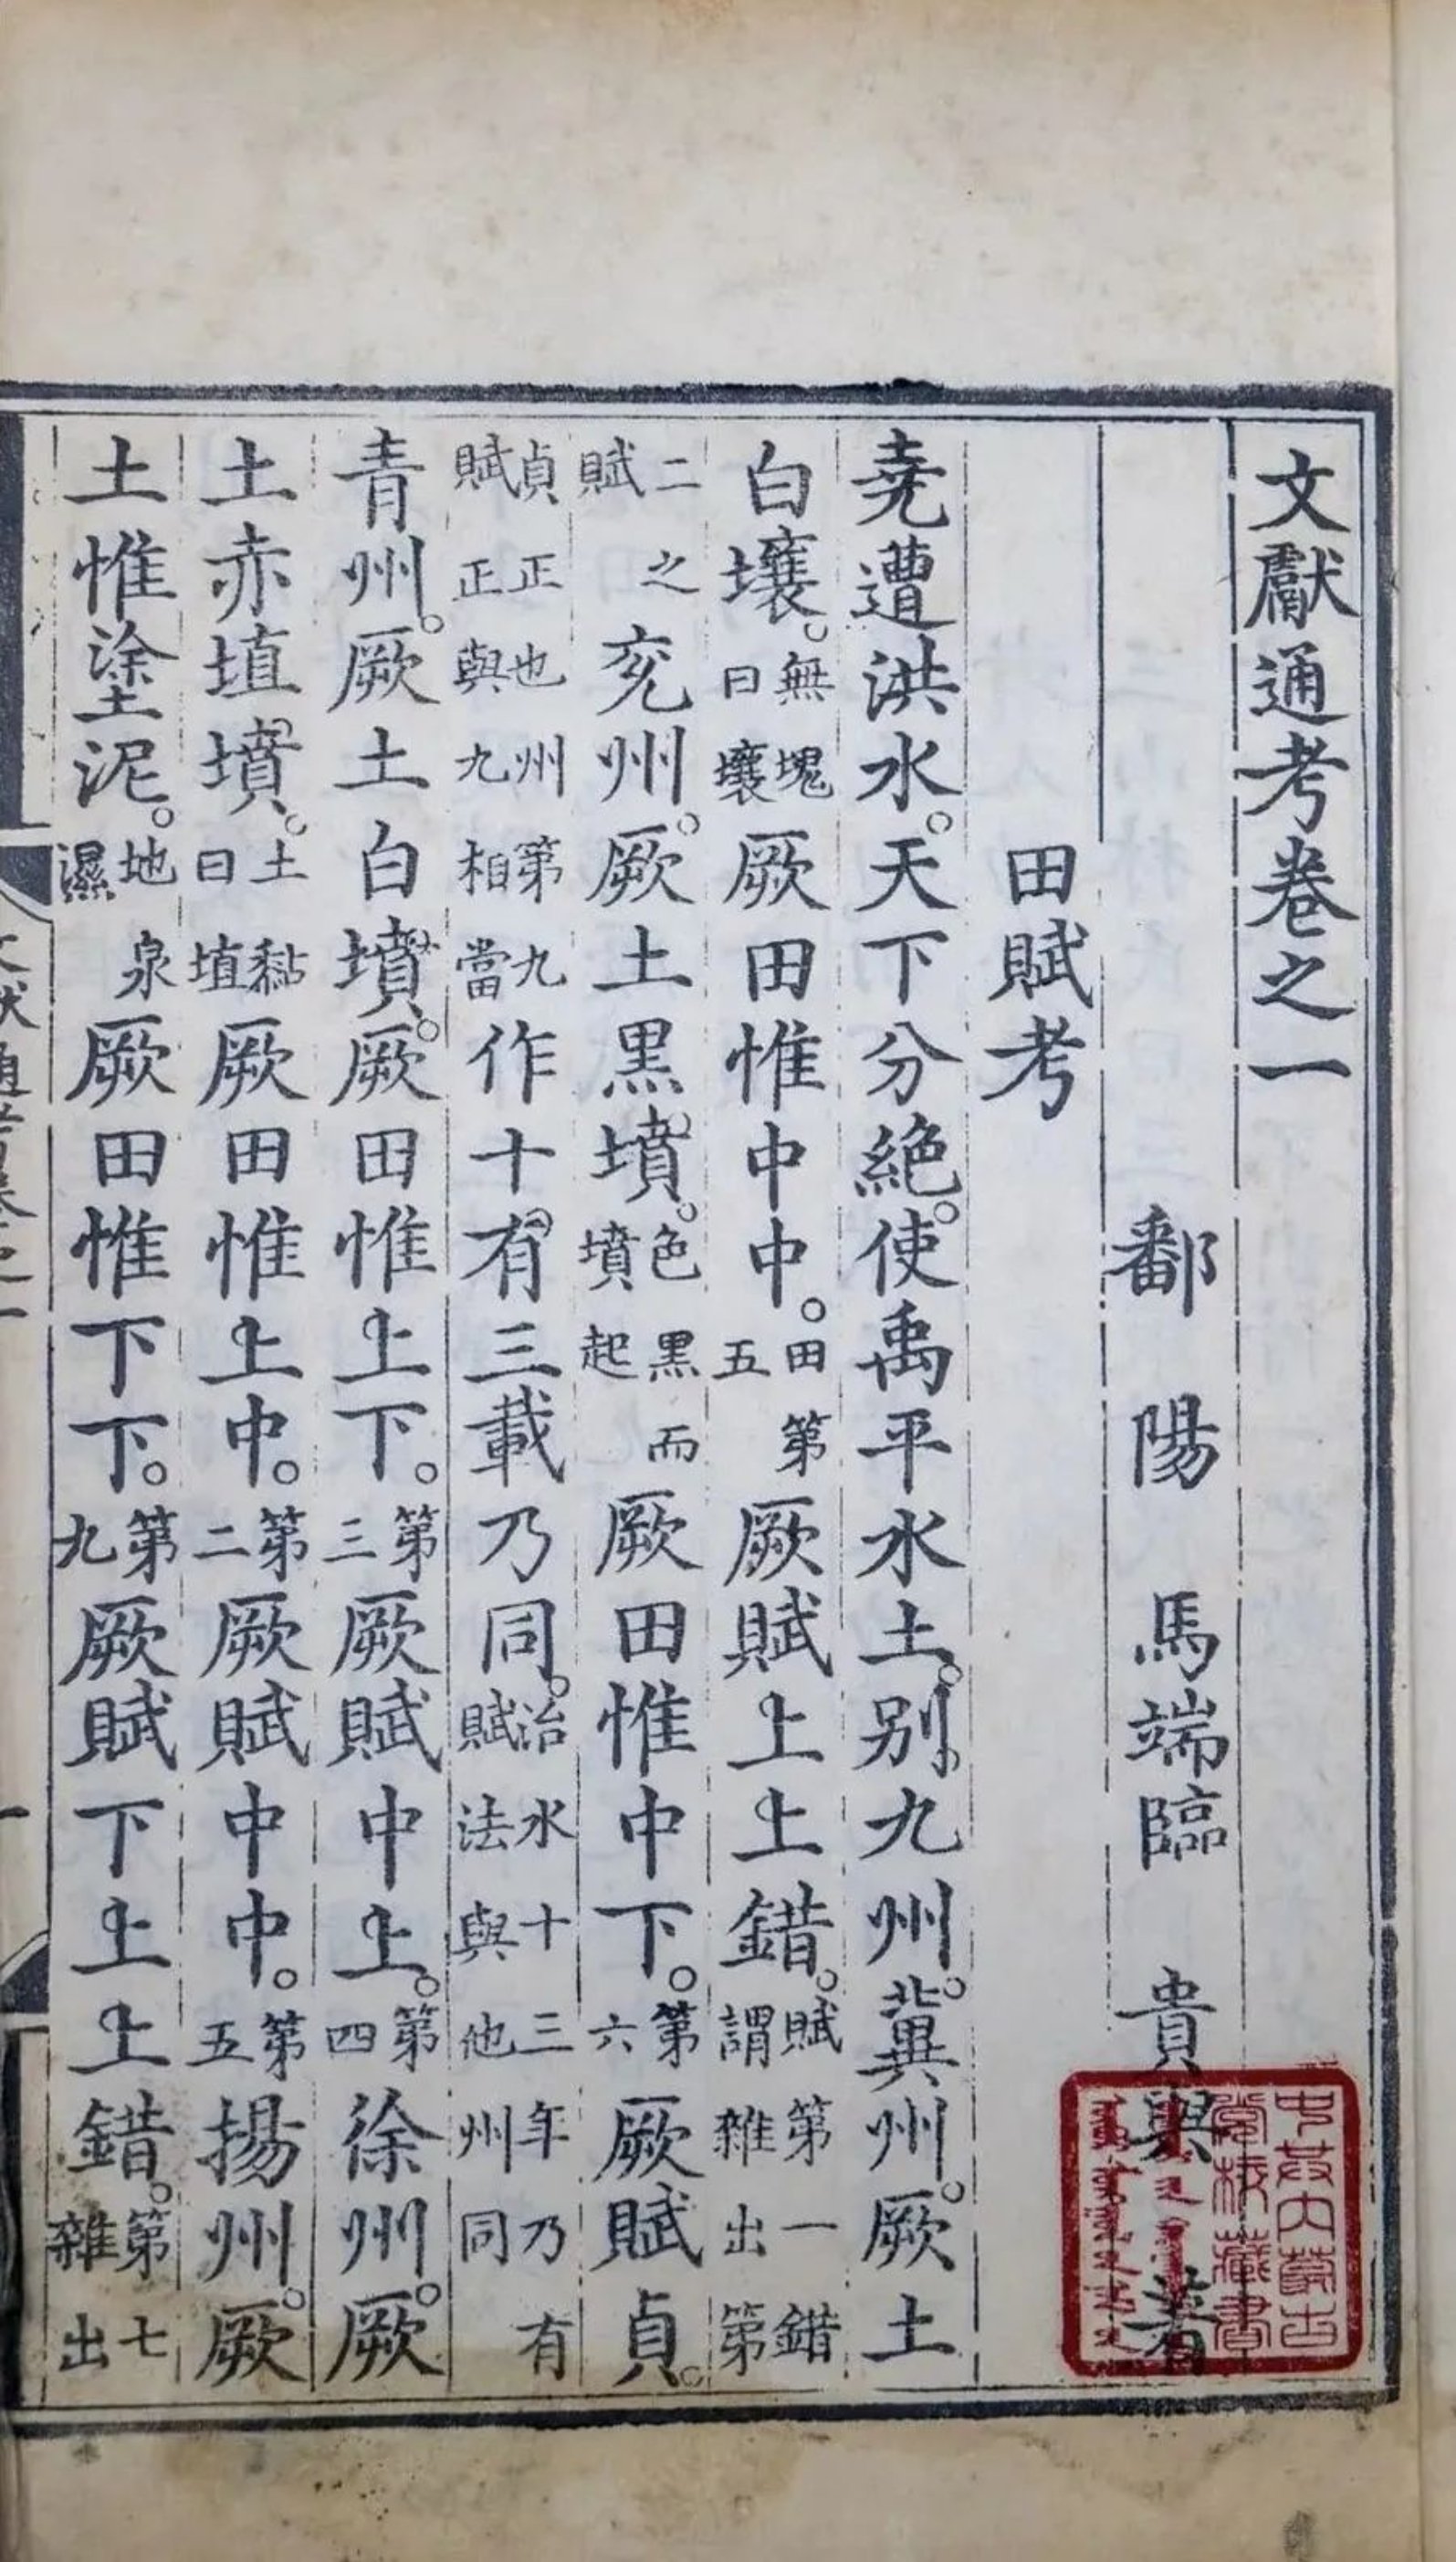 文獻通考卷之一
鄱陽馬端臨貴與著
田賦考
堯遭洪水。天下分絶。使禹平水土。别九州。冀州。厥土
白壤。無塊曰壤厥田惟中中。田第五厥賦上上錯。賦第一錯謂雜出第
二之賦兖州。厥土黒墳。色黒而墳起厥田惟中下。第六厥賦貞。
貞正也州第九賦正與九相當作十有三載乃同。治水十三年乃有賦法與他州同
青州。厥土白墳。厥田惟上下。第三厥賦中上。第四徐州。厥
土赤埴墳。土黏曰埴厥田惟上中。第二厥賦中中。第五揚州。厥
土惟塗泥。地泉濕厥田惟下下。第九厥賦下上上錯。第七雜出
中共内蒙古
黨校藏書